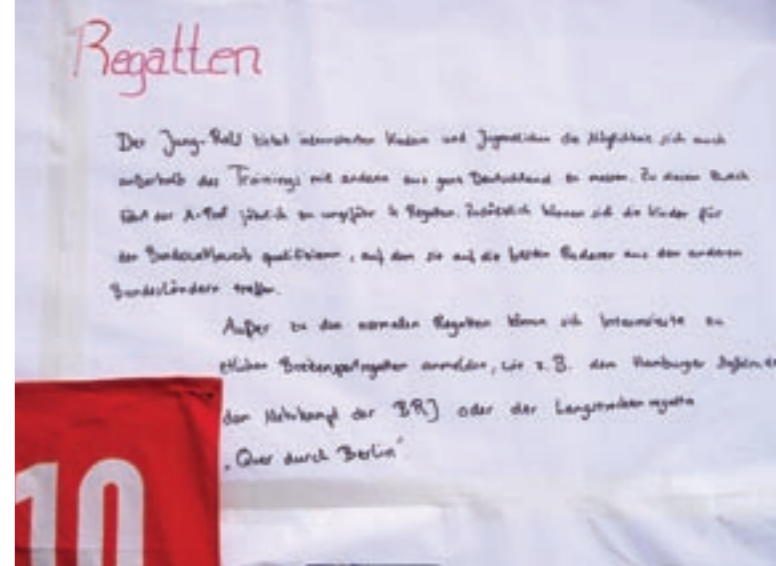 Regatten
Der Jung-RaW bietet interessierten Kindern und Jugendlichen die Möglichkeit sich auch
außerhalb des Trainings mit anderen aus ganz Deutschland zu messen. Zu diesem Zweck
fährt der jährlich zu ungefähr 4 Regatten. Zusätzlich können sich die Kinder für
den Bundeswettbewerb qualifizieren, auf dem sie auf die besten Ruderer aus den anderen
Bundesländern treffen.
Außer zu den normalen Regatten können sich Interessierte zu
etlichen Breitensportregatten anmelden, wie z.B. den Hamburger
dem Mehrkampf der BRJ oder der Langstreckenregatta
"Quer durch Berlin"
10